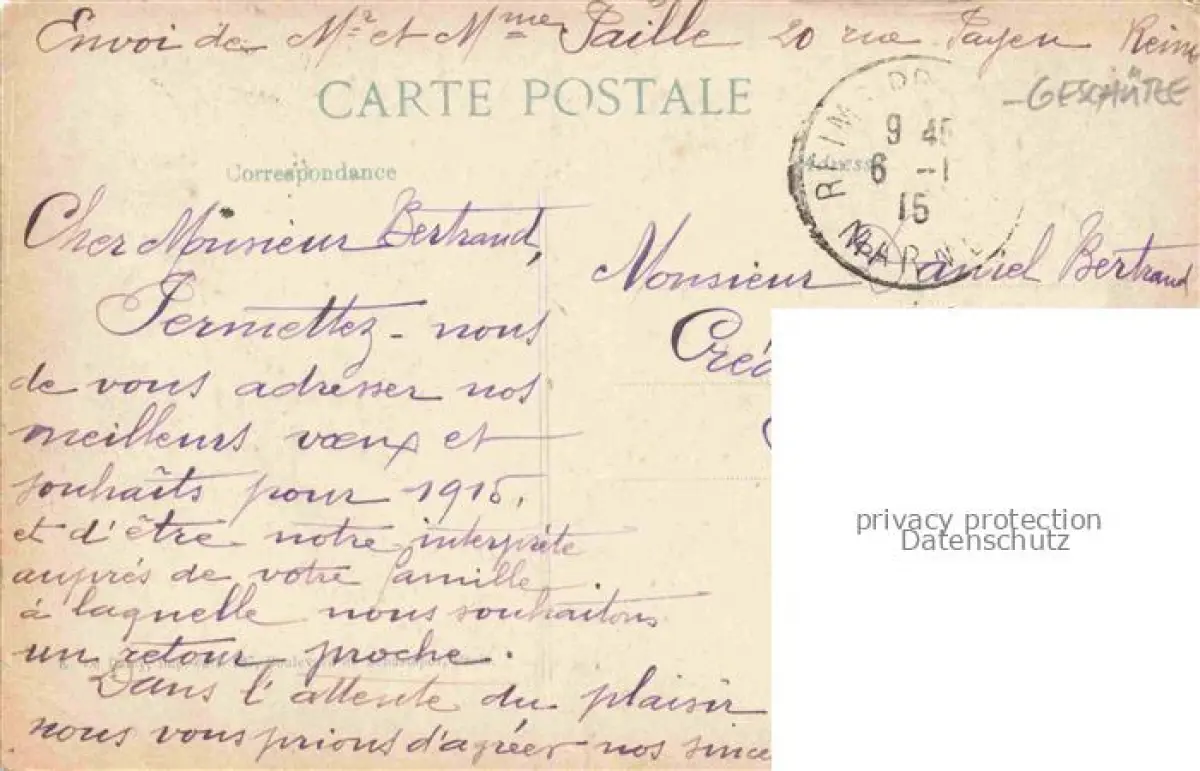 Envoi de Mr et Mme Paille 20 rue Payen Reims
CARTE POSTALE
GESCHÜTZE
Correspondance
Adresse
REIMS
9 45
6 -1
15
MARNE
Cher Monsieur Bertrand,
Permettez-nous
de vous adresser nos
meilleurs vœux et
souhaîts pour 1915,
et d'être notre interprète
auprès de votre famille
à laquelle nous souhaitons
un retour proche.
Dans l'attente du plaisir
nous vous prions d'agréer nos since
Monsieur Daniel Bertrand
Créd
privacy protection
Datenschutz